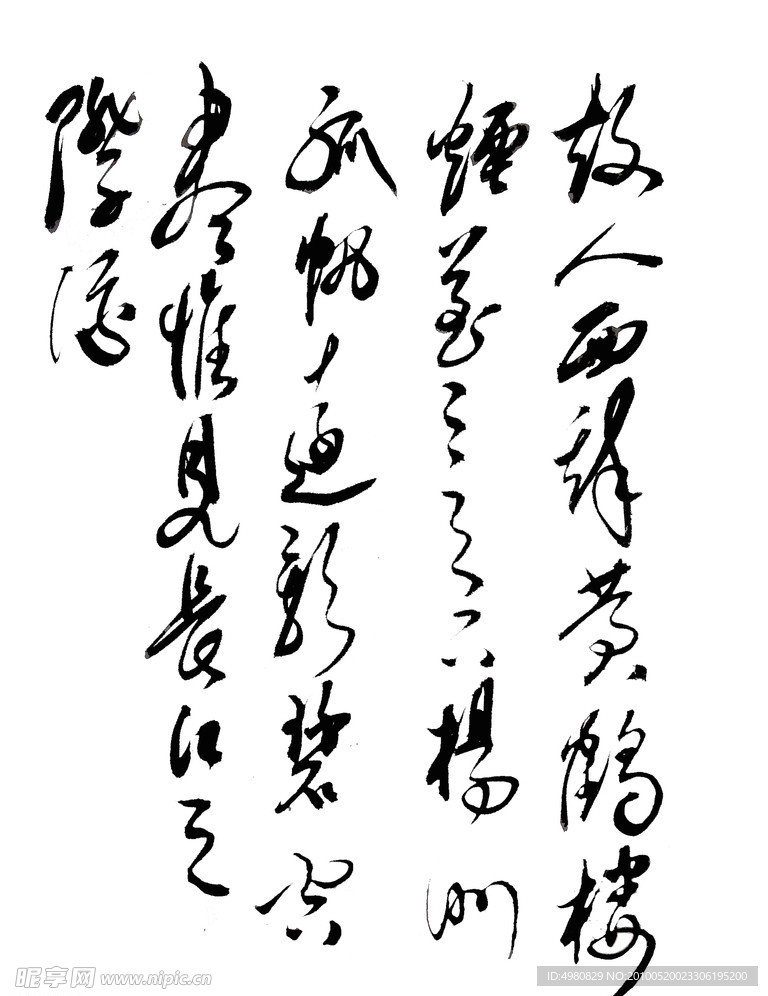 故人西辭黄鶴樓
煙花三月下楊州
孤帆遠影碧空
盡惟見長江天
際流
昵享网 www.nipic.cn
ID:4980829 NO:20100520023306195200